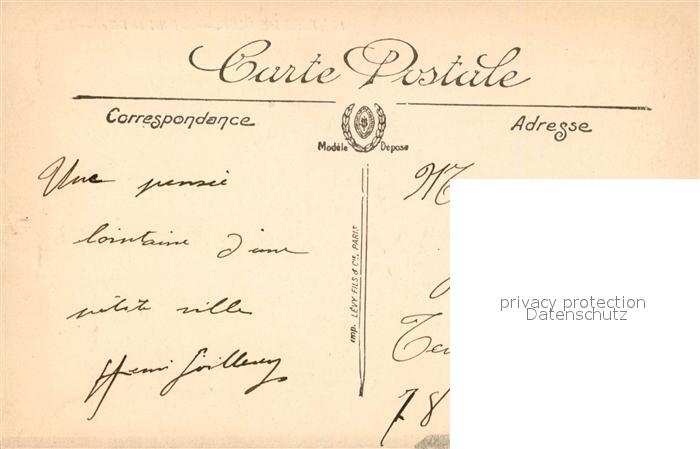 Carte Postale
Correspondance
Adresse
Modèle Déposé
Une pensée
lointaine d'une
petite ville
Henri
imp. LÉVY FILS & Cie, PARIS
M
78
privacy protection
Datenschutz